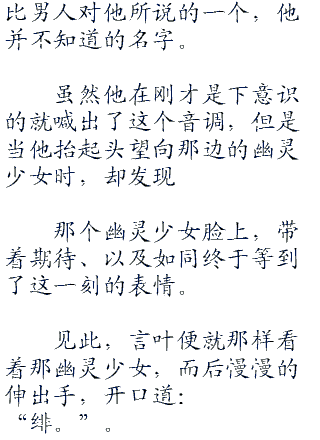 比男人对他所说的一个，他
并不知道的名字。
虽然他在刚才是下意识
的就喊出了这个音调，但是
当他抬起头望向那边的幽灵
少女时，却发现
那个幽灵少女脸上，带
着期待、以及如同终于等到
了这一刻的表情。
见此，言叶便就那样看
着那幽灵少女，而后漫漫的
伸出手，开口道：
“绯。”。